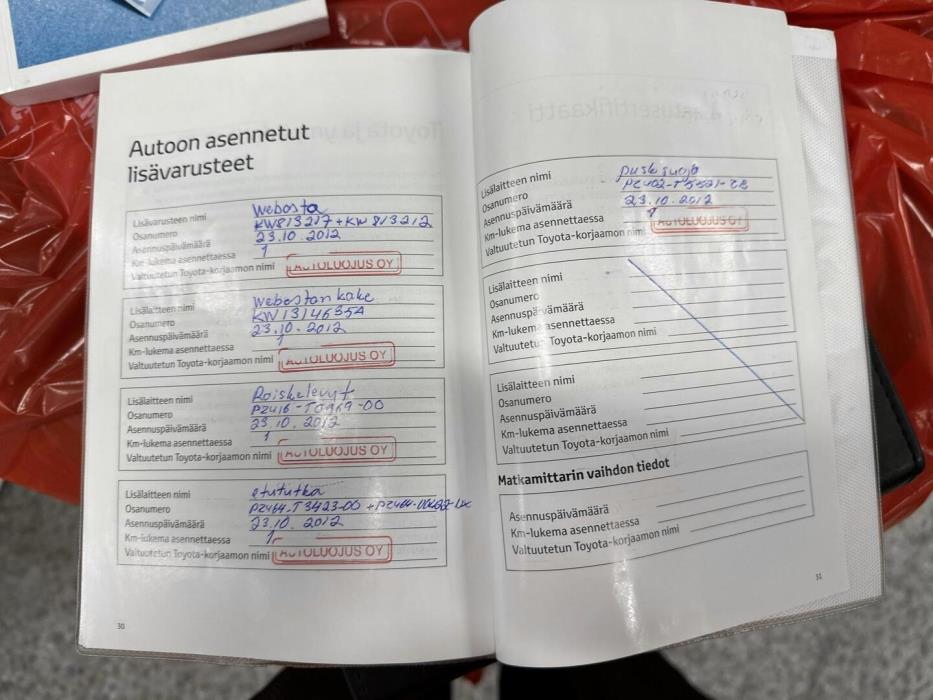 Autoon asennetut
lisävarusteet
Lisävarusteen nimi Webasto
Osanumero KW813217+KW813212
Asennuspäivämäärä 23.10.2012
Km-lukema asennettaessa 1
Valtuutetun Toyota-korjaamon nimi AUTOLUOJUS OY
Lisälaitteen nimi Webastan kake
Osanumero KW1314635A
Asennuspäivämäärä 23.10.2012
Km-lukema asennettaessa 1
Valtuutetun Toyota-korjaamon nimi AUTOLUOJUS OY
Lisälaitteen nimi Roiskelevyt
Osanumero
Asennuspäivämäärä 23.10.2012
Km-lukema asennettaessa 1
Valtuutetun Toyota-korjaamon nimi AUTOLUOJUS OY
Lisälaitteen nimi etututka
Osanumero PZ464-T3423-00
Asennuspäivämäärä 23.10.2012
Km-lukema asennettaessa 1
Valtuutetun Toyota-korjaamon nimi AUTOLUOJUS OY
30
Lisälaitteen nimi pusksuoja
Osanumero
Asennuspäivämäärä 23.10.2012
Km-lukema asennettaessa 1
Valtuutetun Toyota-korjaamon nimi AUTOLUOJUS OY
Lisälaitteen nimi
Osanumero
Asennuspäivämäärä
Km-lukema asennettaessa
Valtuutetun Toyota-korjaamon nimi
Lisälaitteen nimi
Osanumero
Asennuspäivämäärä
Km-lukema asennettaessa
Valtuutetun Toyota-korjaamon nimi
Matkamittarin vaihdon tiedot
Asennuspäivämäärä
Km-lukema asennettaessa
Valtuutetun Toyota-korjaamon nimi
31